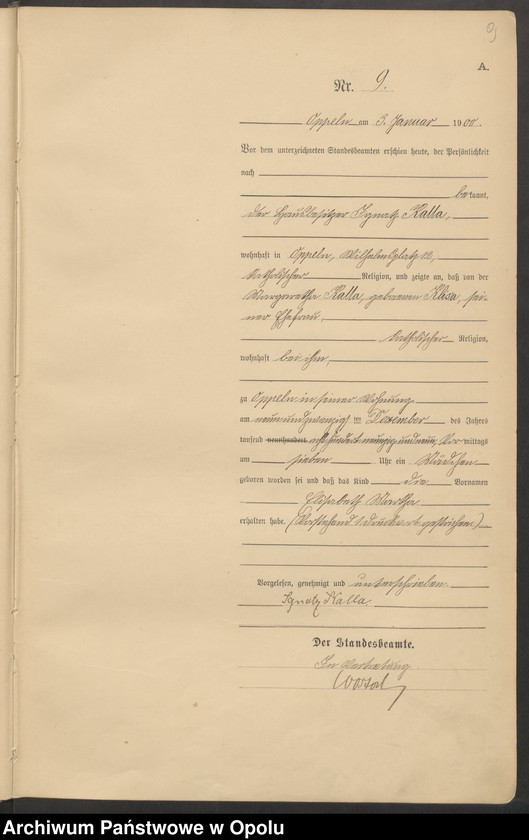 9
A.
Nr. 9.
Oppeln am 3. Januar 1900.
Vor dem unterzeichneten Standesbeamten erschien heute, der Persönlichkeit
nach
bekannt,
der Hausbesitzer Ignatz Kalla,
wohnhaft in Oppeln, Wilhelmsplatz 12,
katholischer Religion, und zeigte an, daß von der
Margaretha Kalla, geborenen Klosa, sei-
ner Ehefrau,
katholischer Religion,
wohnhaft bei ihm,
zu Oppeln in seiner Wohnung
am neun und zwanzigsten Dezember des Jahres
tausend neunhundert achthundert neunzig und neun, Vormittags
um sieben Uhr ein Mädchen
geboren worden sei und daß das Kind die Vornamen
Elisabeth Martha
erhalten habe. (Vorstehend 1 Druckwort gestrichen.)
Vorgelesen, genehmigt und unterschrieben
Ignatz Kalla.
Der Standesbeamte.
In Vertretung
Archiwum Państwowe w Opolu